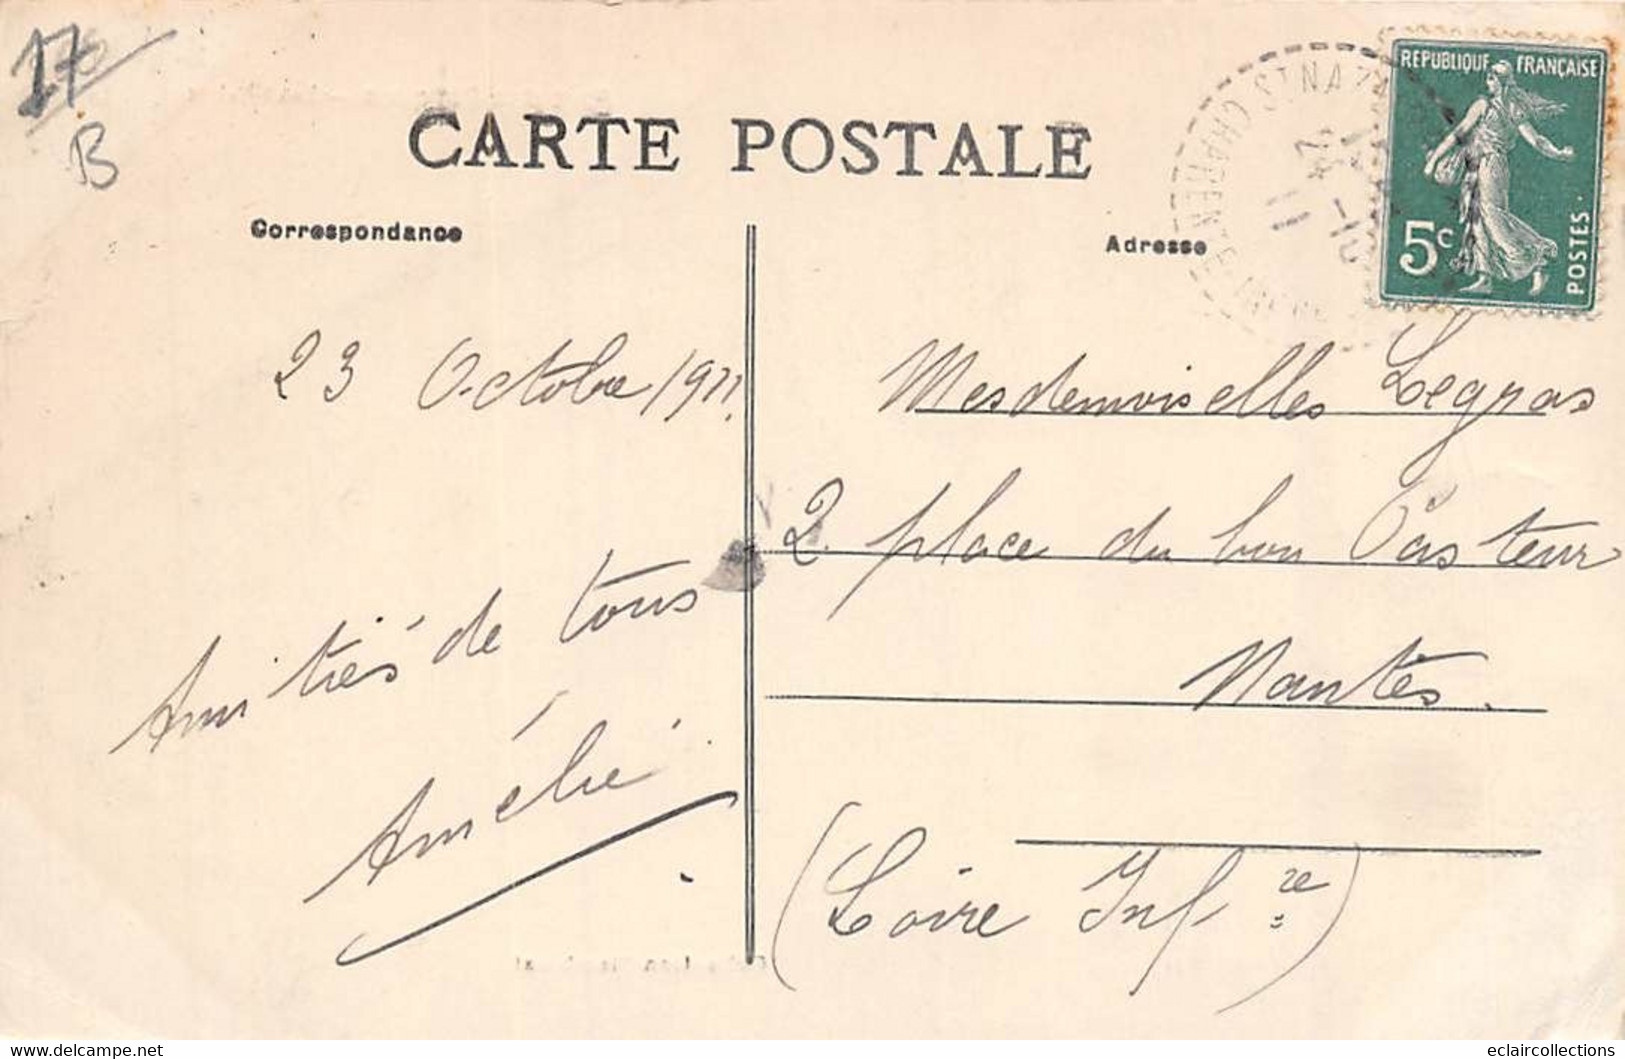 17
B
CARTE POSTALE
Correspondance
Adresse
REPUBLIQUE FRANÇAISE
5c
POSTES
ST NAZ
CHAREN
23 Octobre 1911.
Amitiés de tous
Amélie
Mesdemoiselles Legras
2 place du bon Pasteur
Nantes.
(Loire Infre)
delcampe.net
eclaircollections